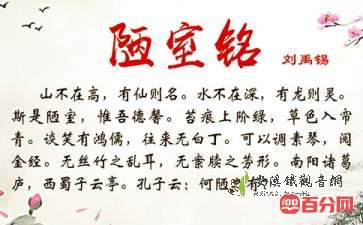 陋室铭
刘禹锡
山不在高，有仙则名。水不在深，有龙则灵。
斯是陋室，惟吾德馨。苔痕上阶绿，草色入帘
青。谈笑有鸿儒，往来无白丁。可以调素琴，阅
金经。无丝竹之乱耳，无案牍之劳形。南阳诸葛
庐，西蜀子云亭。孔子云：何陋之有？
溪铁觀音網
百分网